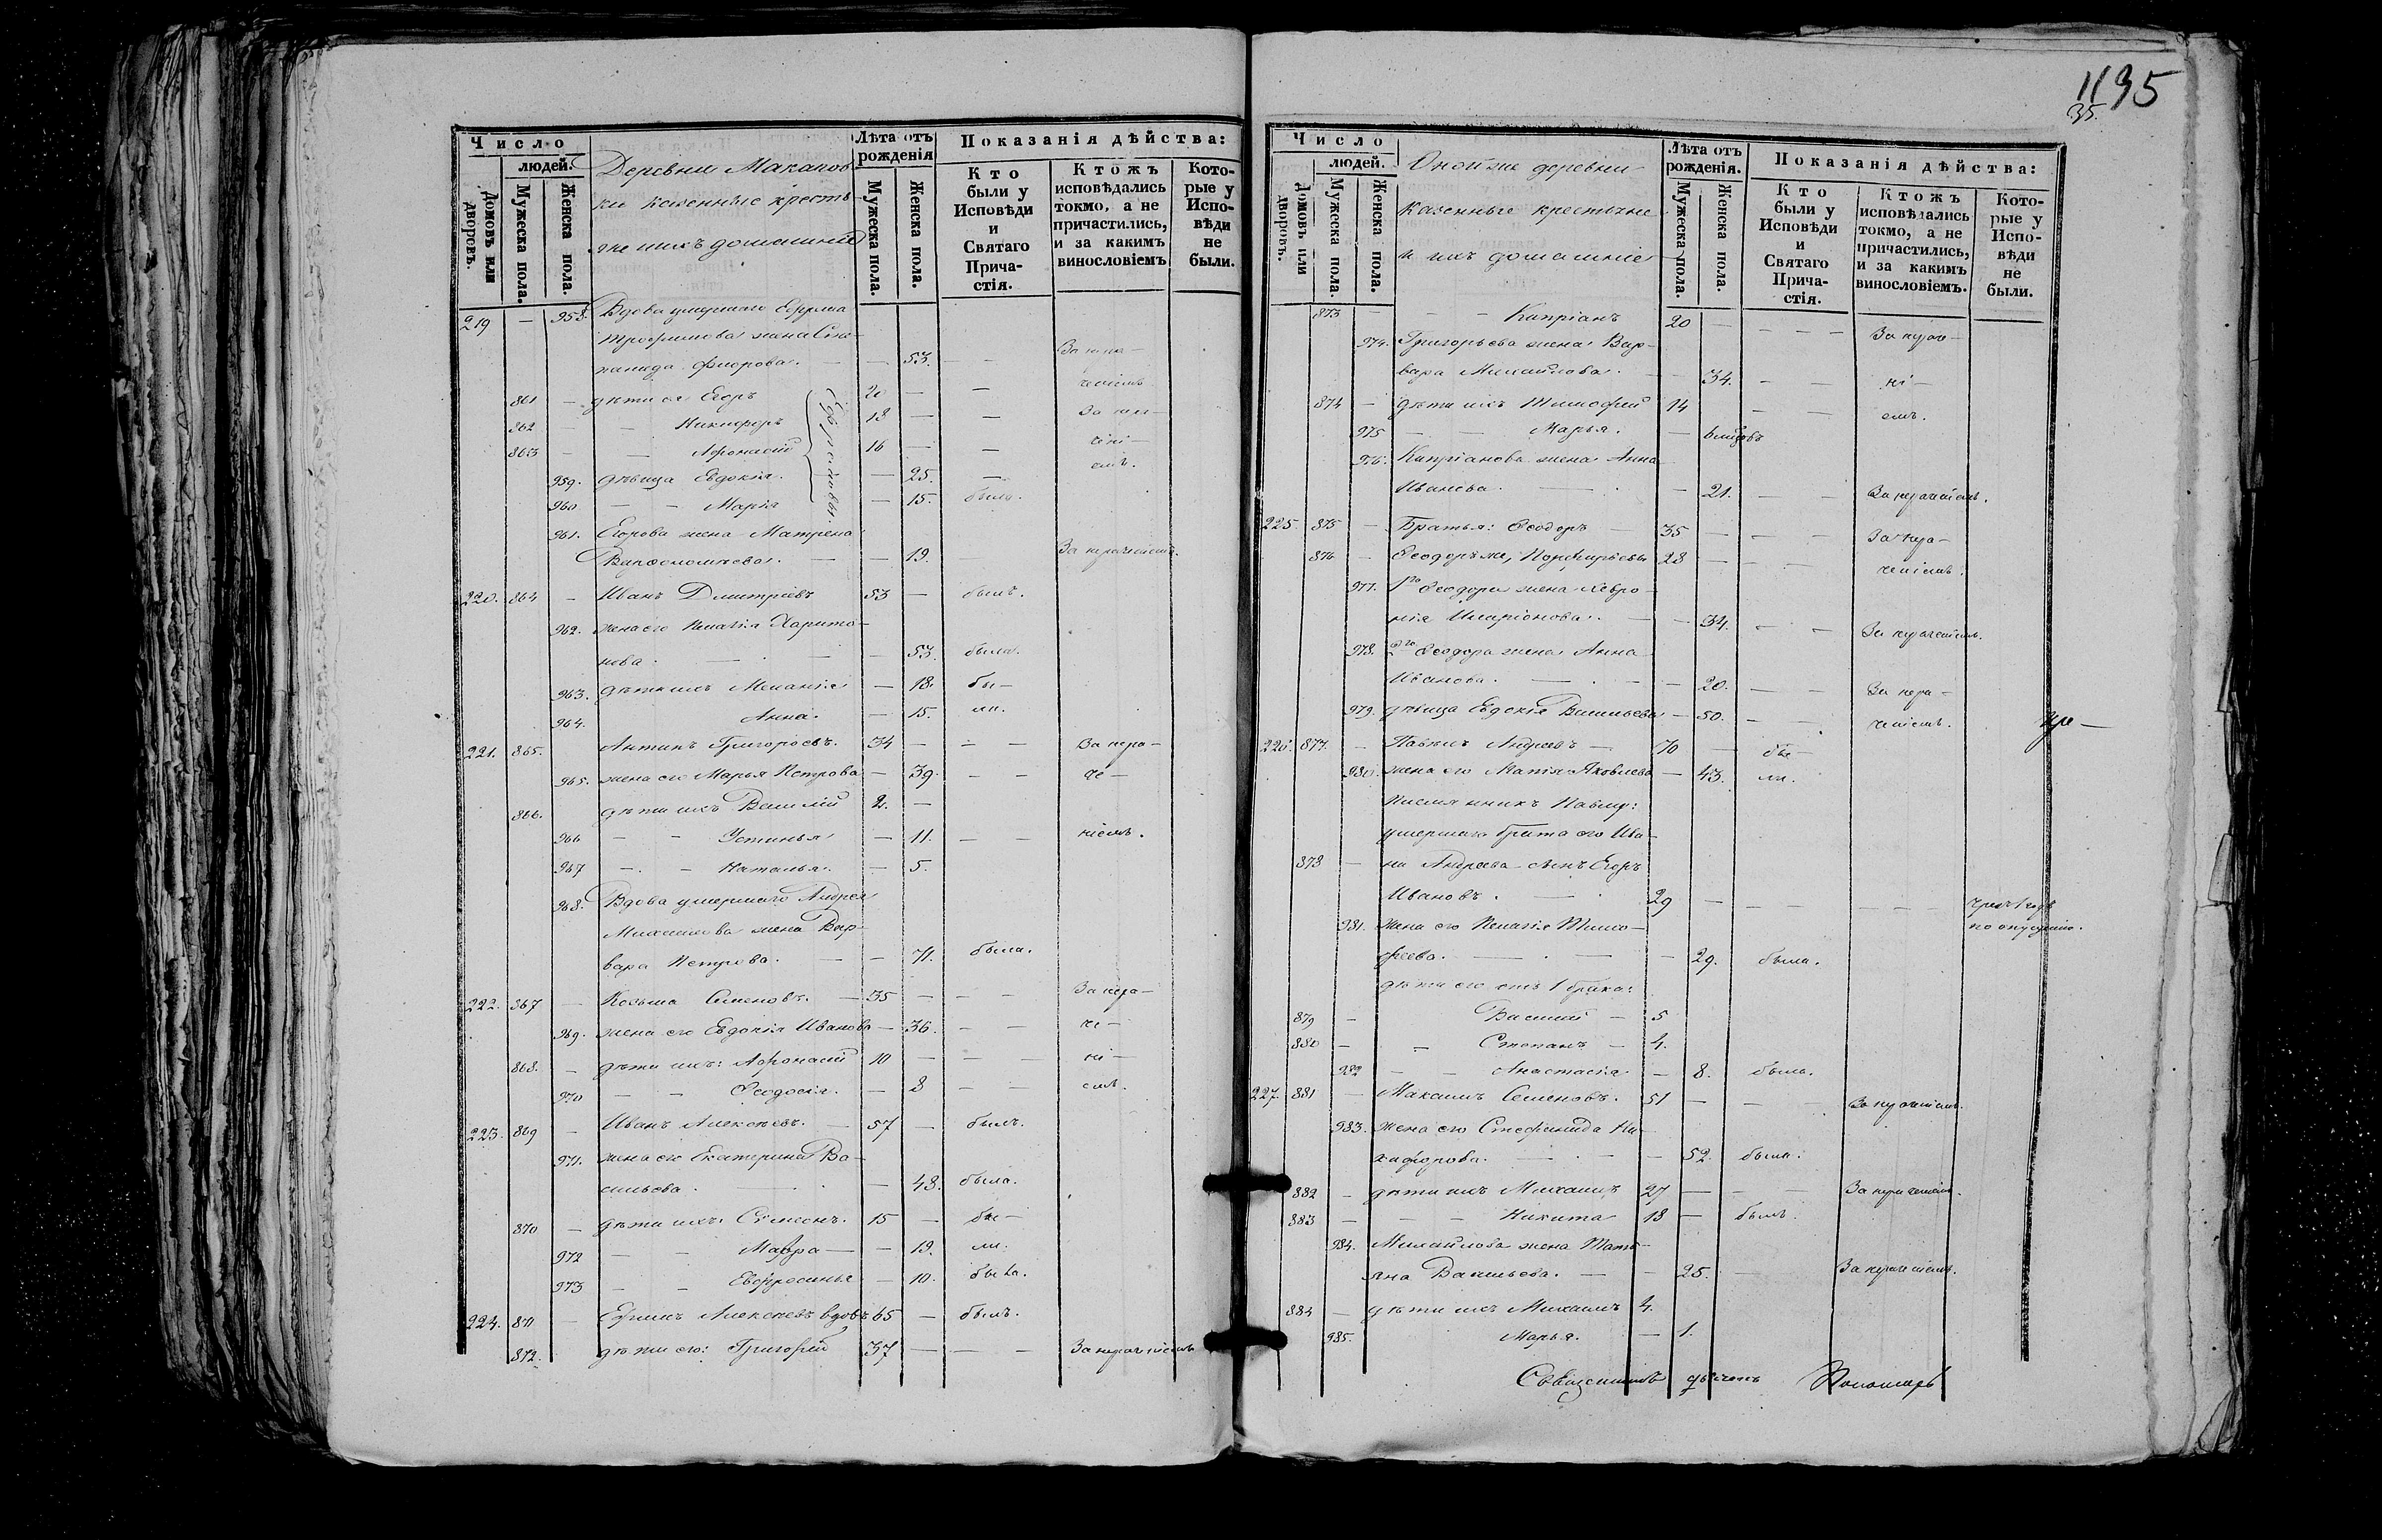 1195
35.
Число
людей.
Домовъ или дворовъ.
Мужеска пола.
Женска пола.
Деревни Макапов-
ки казенные кресть-
яне и ихъ домашние
Лѣта отъ рожденія
Мужеска пола.
Женска пола.
Показанія дѣйства:
Кто были у Исповѣди и Святаго Прича-стія.
Ктожъ исповѣдались токмо, а не причастились, и за какимъ винословіемъ
Кото-рые у Испо-вѣди не были.
219 — 958. Вдова умершаго Ефрема
Трофимова жена Сте-
панида Фиорова. — — 53. — — За нра-
ченіемъ
861 — дѣти ея Егоръ 20 — —
862 — — Никифоръ 18 — — За нра-
863 — — Афонасій 16 — — чені-
959. дѣвица Евдокія. — 25. — емъ.
960 — — Марія — 15. была.
Ефремовы.
961. Егорова жена Матрена
Варфоломѣева. — — 19. — За нерачетіемъ.
220. 864 — Иванъ Дмитріевъ 53 — былъ.
962. жена его Пелагія Харито-
нова. — — — 53. была.
963. дѣти ихъ Меланія — 18. бы-
964. Анна. — 15. ли.
221. 865. Антипъ Григорьевъ. 34 — — — За нера-
965. жена его Марья Петрова — 39. — — че-
866. дѣти ихъ Василій 2. —
966 — — Устинья — 11. — — ніемъ.
967 — — Наталья. — 5.
968. Вдова умершаго Андрея
Михайлова жена Вар-
вара Петрова. — — 71. была.
222. 867 — Козьма Семеновъ. — 35 — — — За нера-
969. жена его Евдокія Иванова — 36. — — че-
868. — дѣти ихъ: Афонасій 10 — — — ні-
970 — — Ѳеодосія. — 8 — — емъ.
223. 869 — Иванъ Алексѣевъ. — 57 — былъ.
971. жена его Екатерина Ва-
сильева. — — — 48. была.
870 — дѣти ихъ: Симеонъ. 15 — бы-
972 — — Мавра — — 19. ли.
973 — — Евфросинья — 10. была.
224. 871 — Ефимъ Алексѣевъ вдовъ 65 — былъ.
872. дѣти его: Григорій 37 — — — За нераченіемъ
Число
людей.
Домовъ или дворовъ.
Мужеска пола.
Женска пола.
Оной же деревни
казенные крестьяне
и ихъ домашніе
Лѣта отъ рожденія.
Мужеска пола.
Женска пола.
Показанія дѣйства:
Кто были у Исповѣди и Святаго Прича-стія.
Ктожъ исповѣдались токмо, а не причастились, и за какимъ винословіемъ.
Кото-рые у Испо-вѣди не были.
873 — — — Кипріанъ 20 — — — — За нраче-
974. Григорьева жена Вар-
вара Михайлова. — — 34. — — ні-
874 — дѣти ихъ Тимофей 14 — — емъ.
975 — — Марья. —
976. Кипріанова жена Анна
Иванова. — — 21. — — За нераченіемъ.
225. 875 — Братья: Ѳеодоръ — 35 — — — За нера-
876 — Ѳеодоръ же, Порфирьевы 28 — — — ченіемъ.
977. 1го Ѳеодора жена Хевро-
нія Иларіонова. — — 34. — — За нераченіемъ.
978. 2го Ѳеодора жена Анна
Иванова. — — — 20. — — За нера-
979. дѣвица Евдокія Васильева — 50. — ченіемъ.
226. 877. — Павелъ Андреевъ — 70 — бы-
980. жена его Марія Яковлева — 43. ли.
Племянникъ Павлу:
умершаго брата его Ива-
878 — на Андреева сынъ Егоръ
Ивановъ. — 29 — — — — — —
по опущенію.
981. Жена его Пелагія Тимо-
феева. — — — 29. была.
дѣти его отъ 1 брака:
879 — Василій — 5
880 — — Степанъ — 4.
982 — — Анастасія — 8. была.
227. 881 — Максимъ Семеновъ. 51 — — — За нераченіемъ.
983. жена его Стефанида Ни-
кифорова. — — — 52. была.
882 — дѣти ихъ Михаилъ 27 — — — За нераченіемъ.
883 — — — Никита 18 — былъ.
984. Михайлова жена Тать-
яна Васильева. — — 25. — За нераченіемъ.
884 — дѣти ихъ Михаилъ 4.
985. Марья. — 1.
Священникъ Пономарь